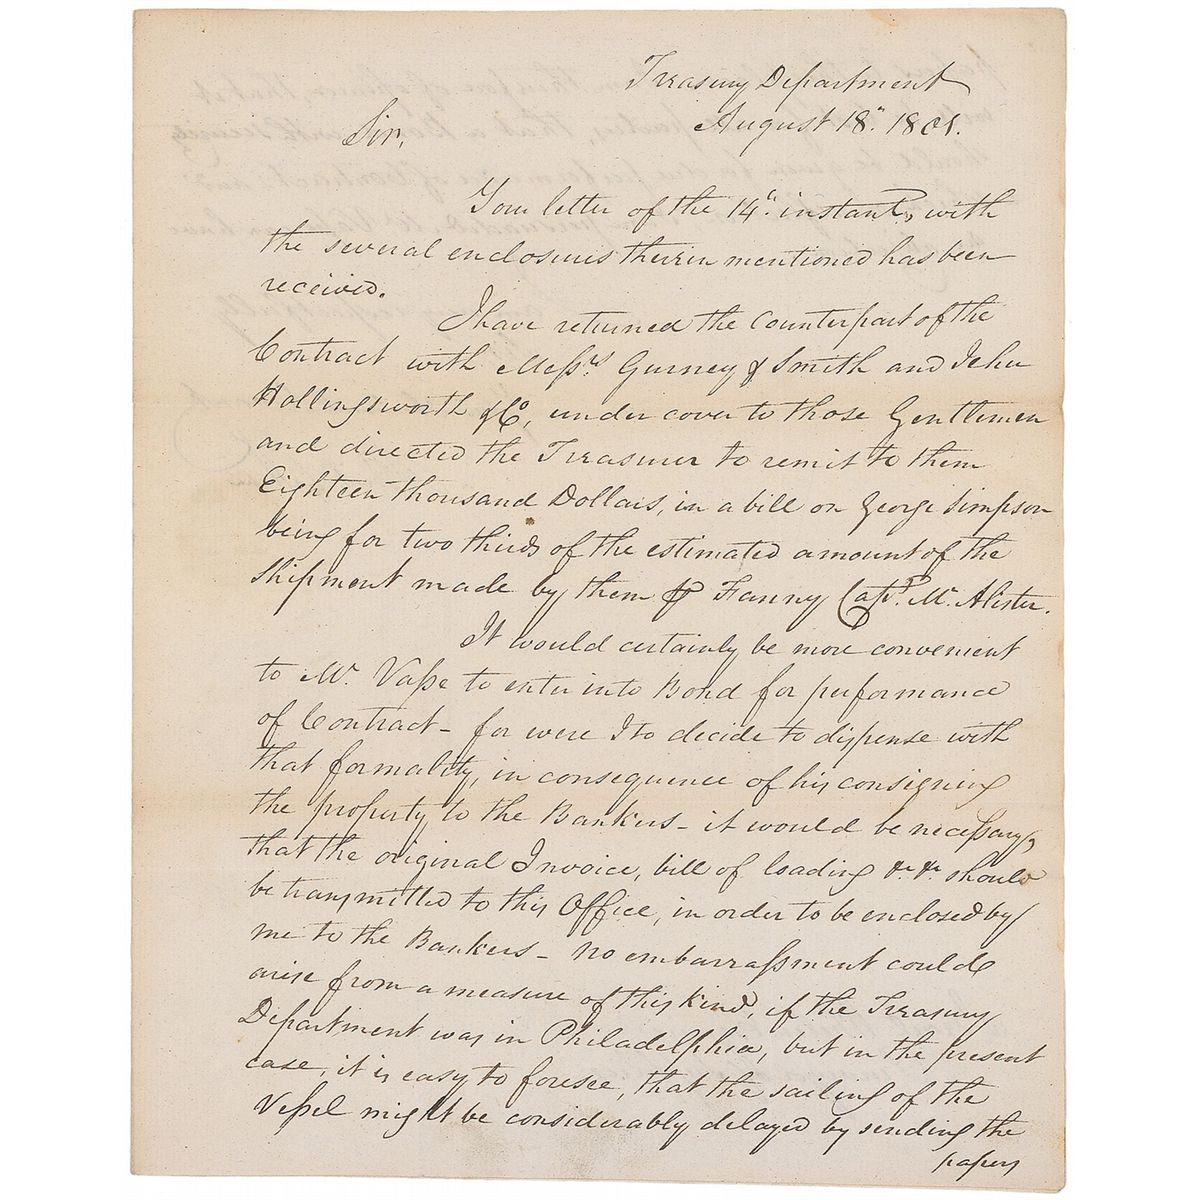 Treasury Department
August 18th. 1801.
Sir,
Your letter of the 14th. instant, with
the several enclosures therein mentioned has been
received.
I have returned the Counterpart of the
Contract with Messrs. Gurney & Smith and Jehu
Hollingsworth & Co, under cover to those Gentlemen
and directed the Treasurer to remit to them
Eighteen thousand Dollars, in a bill on George Simpson
being for two thirds of the estimated amount of the
shipment made by them ⅌ Fanny Capt. Mc. Alister.
It would certainly be more convenient
to Mr. Vasse to enter into Bond for performance
of Contract - for were I to decide to dispense with
that formality, in consequence of his consigning
the property to the Bankers - it would be necessary,
that the original Invoice, bill of loading &c. &c. should
be transmitted to this Office, in order to be enclosed by
me to the Bankers - no embarrassment could
arise from a measure of this kind, if the Treasury
Department was in Philadelphia, but in the present
case, it is easy to foresee, that the sailing of the
Vessel might be considerably delayed by sending the
papers